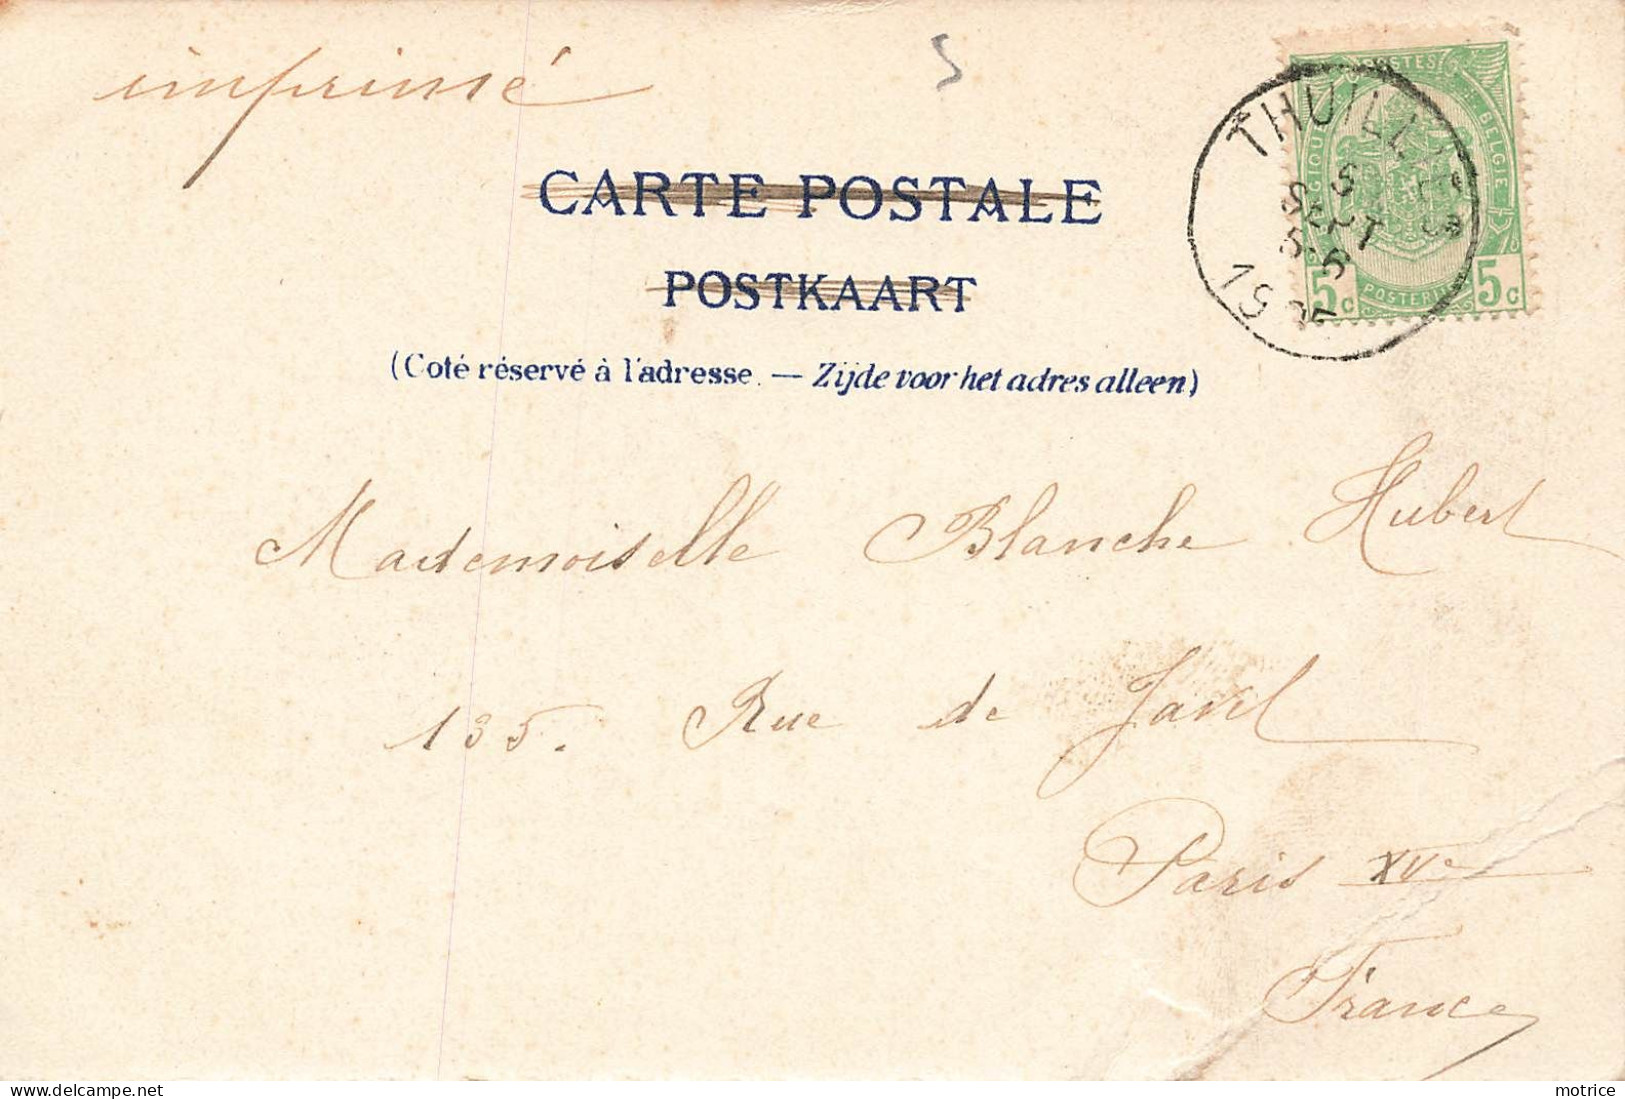 imprimé
5
CARTE POSTALE
POSTKAART
(Coté réservé à l'adresse. — Zijde voor het adres alleen)
POSTES
BELGIQUE
BELGIE
POSTERIJEN
5c 5c
THUILLIES
5
SEPT
5-6
1905
Mademoiselle Blanche Hubert
135. Rue de Javel
Paris XVe
France
motrice